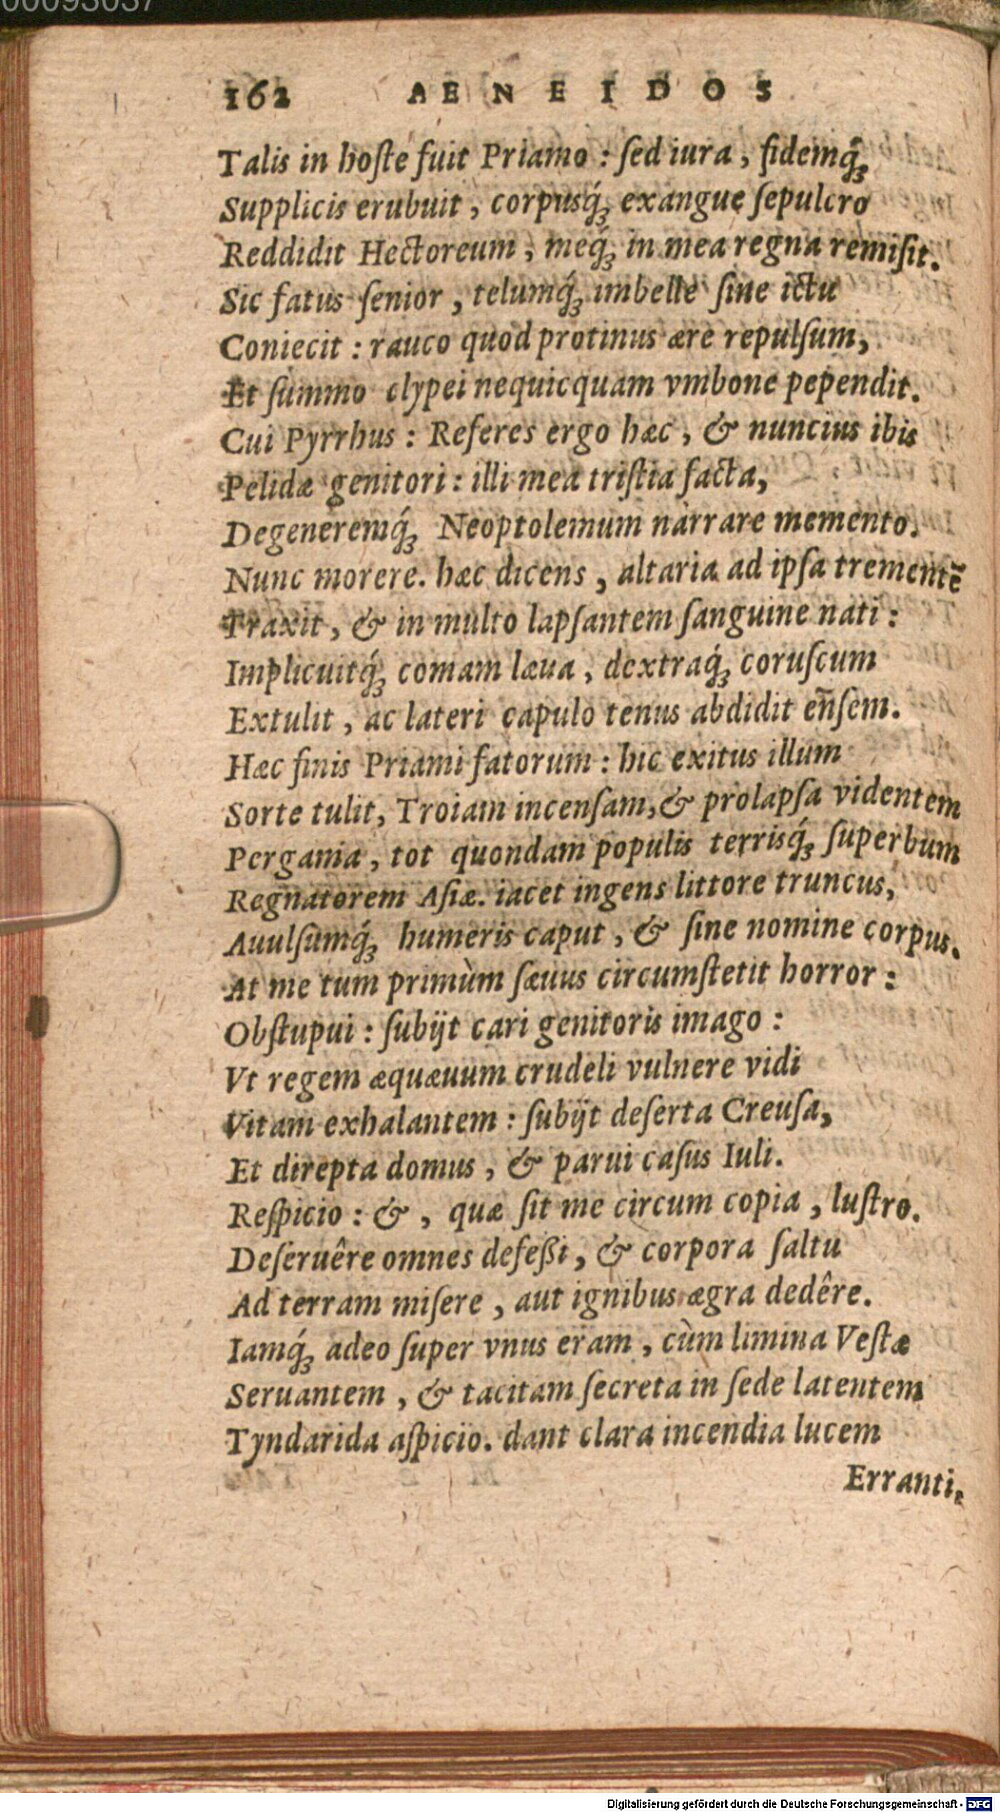 00093037
162 AENEIDOS
Talis in hoſte fuit Priamo : ſed iura , fidemq́ꝫ
Supplicis erubuit , corpusq́ꝫ exangue ſepulcro
Reddidit Hectoreum , meq́ꝫ in mea regna remiſit.
Sic fatus ſenior , telumq́ꝫ imbelle ſine ictu
Coniecit : rauco quod protinus ære repulſum,
Et ſummo clypei nequicquam vmbone pependit.
Cui Pyrrhus : Referes ergo hæc , & nuncius ibis
Pelidæ genitori : illi mea triſtia facta,
Degeneremq́ꝫ Neoptolemum narrare memento.
Nunc morere. hæc dicens , altaria ad ipſa trementẽ
Traxit , & in multo lapſantem ſanguine nati :
Implicuitq́ꝫ comam læua , dextraq́ꝫ coruſcum
Extulit , ac lateri capulo tenus abdidit en̄ſem.
Hæc finis Priami fatorum : hic exitus illum
Sorte tulit, Troiam incenſam,& prolapſa videntem
Pergama , tot quondam populis terrisq́ꝫ ſuperbum
Regnatorem Aſiæ. iacet ingens littore truncus,
Auulſumq́ꝫ humeris caput , & ſine nomine corpus.
At me tum primùm ſæuus circumſtetit horror :
Obſtupui : ſubijt cari genitoris imago :
Vt regem æquæuum crudeli vulnere vidi
Vitam exhalantem : ſubijt deſerta Creuſa,
Et direpta domus , & parui caſus Iuli.
Reſpicio : & , quæ ſit me circum copia , luſtro.
Deſeruêre omnes defeßi , & corpora ſaltu
Ad terram miſere , aut ignibus ægra dedêre.
Iamq́ꝫ adeo ſuper vnus eram , cùm limina Veſtæ
Seruantem , & tacitam ſecreta in ſede latentem
Tyndarida aſpicio. dant clara incendia lucem
Erranti,
Digitalisierung gefördert durch die Deutsche Forschungsgemeinschaft - DFG